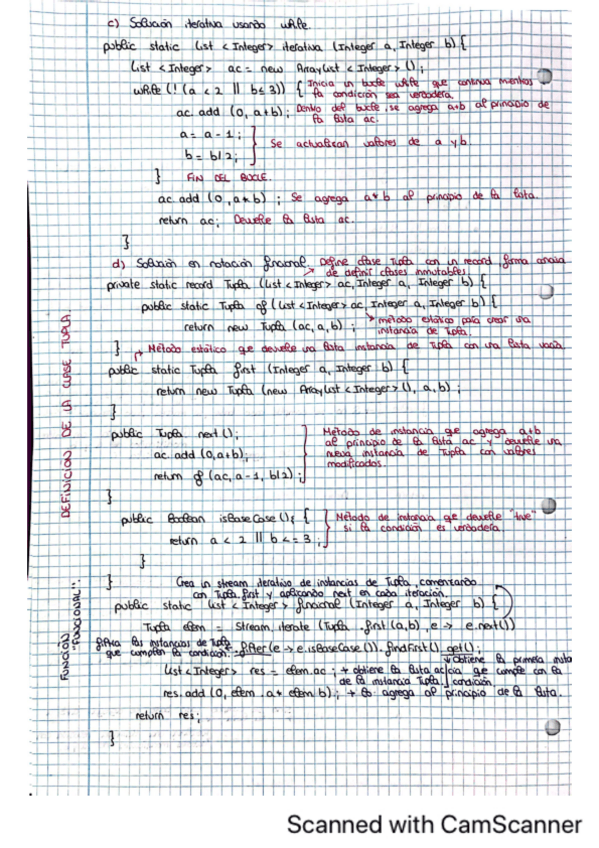 c) Solución iterativa usando while.
public static List <Integer> iterativa (Integer a, Integer b) {
List <Integer> ac = new ArrayList <Integer> ();
while (! (a < 2 || b ≤ 3)) { Inicia un bucle while que continua mientras
la condición sea verdadera.
ac. add (0, a+b); Dentro del bucle, se agrega a+b al principio de
la lista ac.
a = a - 1;
b = b/2; Se actualizan valores de a y b
} FIN DEL BUCLE.
ac. add (0, a*b) ; Se agrega a*b al principio de la lista.
return ac; Devuelve la lista ac.
}
d) Solución en notación funcional. Define clase Tupla con un record, forma
de definir clases inmutables
private static record Tupla (List <Integer> ac, Integer a, Integer b) {
public static Tupla of (List <Integer> ac, Integer a, Integer b) {
return new Tupla (ac, a, b) ; método estático para crear una
instancia de Tupla.
} Método estático que devuelve una lista instancia de Tupla con una lista vacía
public static Tupla first (Integer a, Integer b) {
return new Tupla (new ArrayList <Integer> (), a, b) ;
}
public Tupla next ();
ac. add (0, a+b);
return of (ac, a - 1, b/2) ;
Método de instancia que agrega a+b
al principio de la lista ac y devuelve una
nueva instancia de Tupla con valores
modificados.
}
public Boolean isBaseCase (); {
return a < 2 || b <= 3 ;
Método de instancia que devuelve "true"
si la condición es verdadera.
}
}
DEFINICION DE LA CLASE TUPLA
FUNCIÓN "FUNCIONAL":
Crea un stream iterativo de instancias de Tupla, comenzando
con Tupla.first y aplicando next en cada iteración.
public static List <Integer> funcional (Integer a, Integer b) {
Tupla elem = Stream. iterate (Tupla .first (a, b), e -> e. next ())
filtra las instancias de Tupla
que cumplen la condición. .filter (e -> e. isBaseCase ()). findFirst (). get ();
Obtiene la primera
que cumple con la
condición.
List <Integer> res = elem. ac ; → obtiene la lista ac
de la instancia Tupla.
res. add (0, elem. a * elem. b) ; → lo agrega al principio de la lista.
return res;
}
Scanned with CamScanner